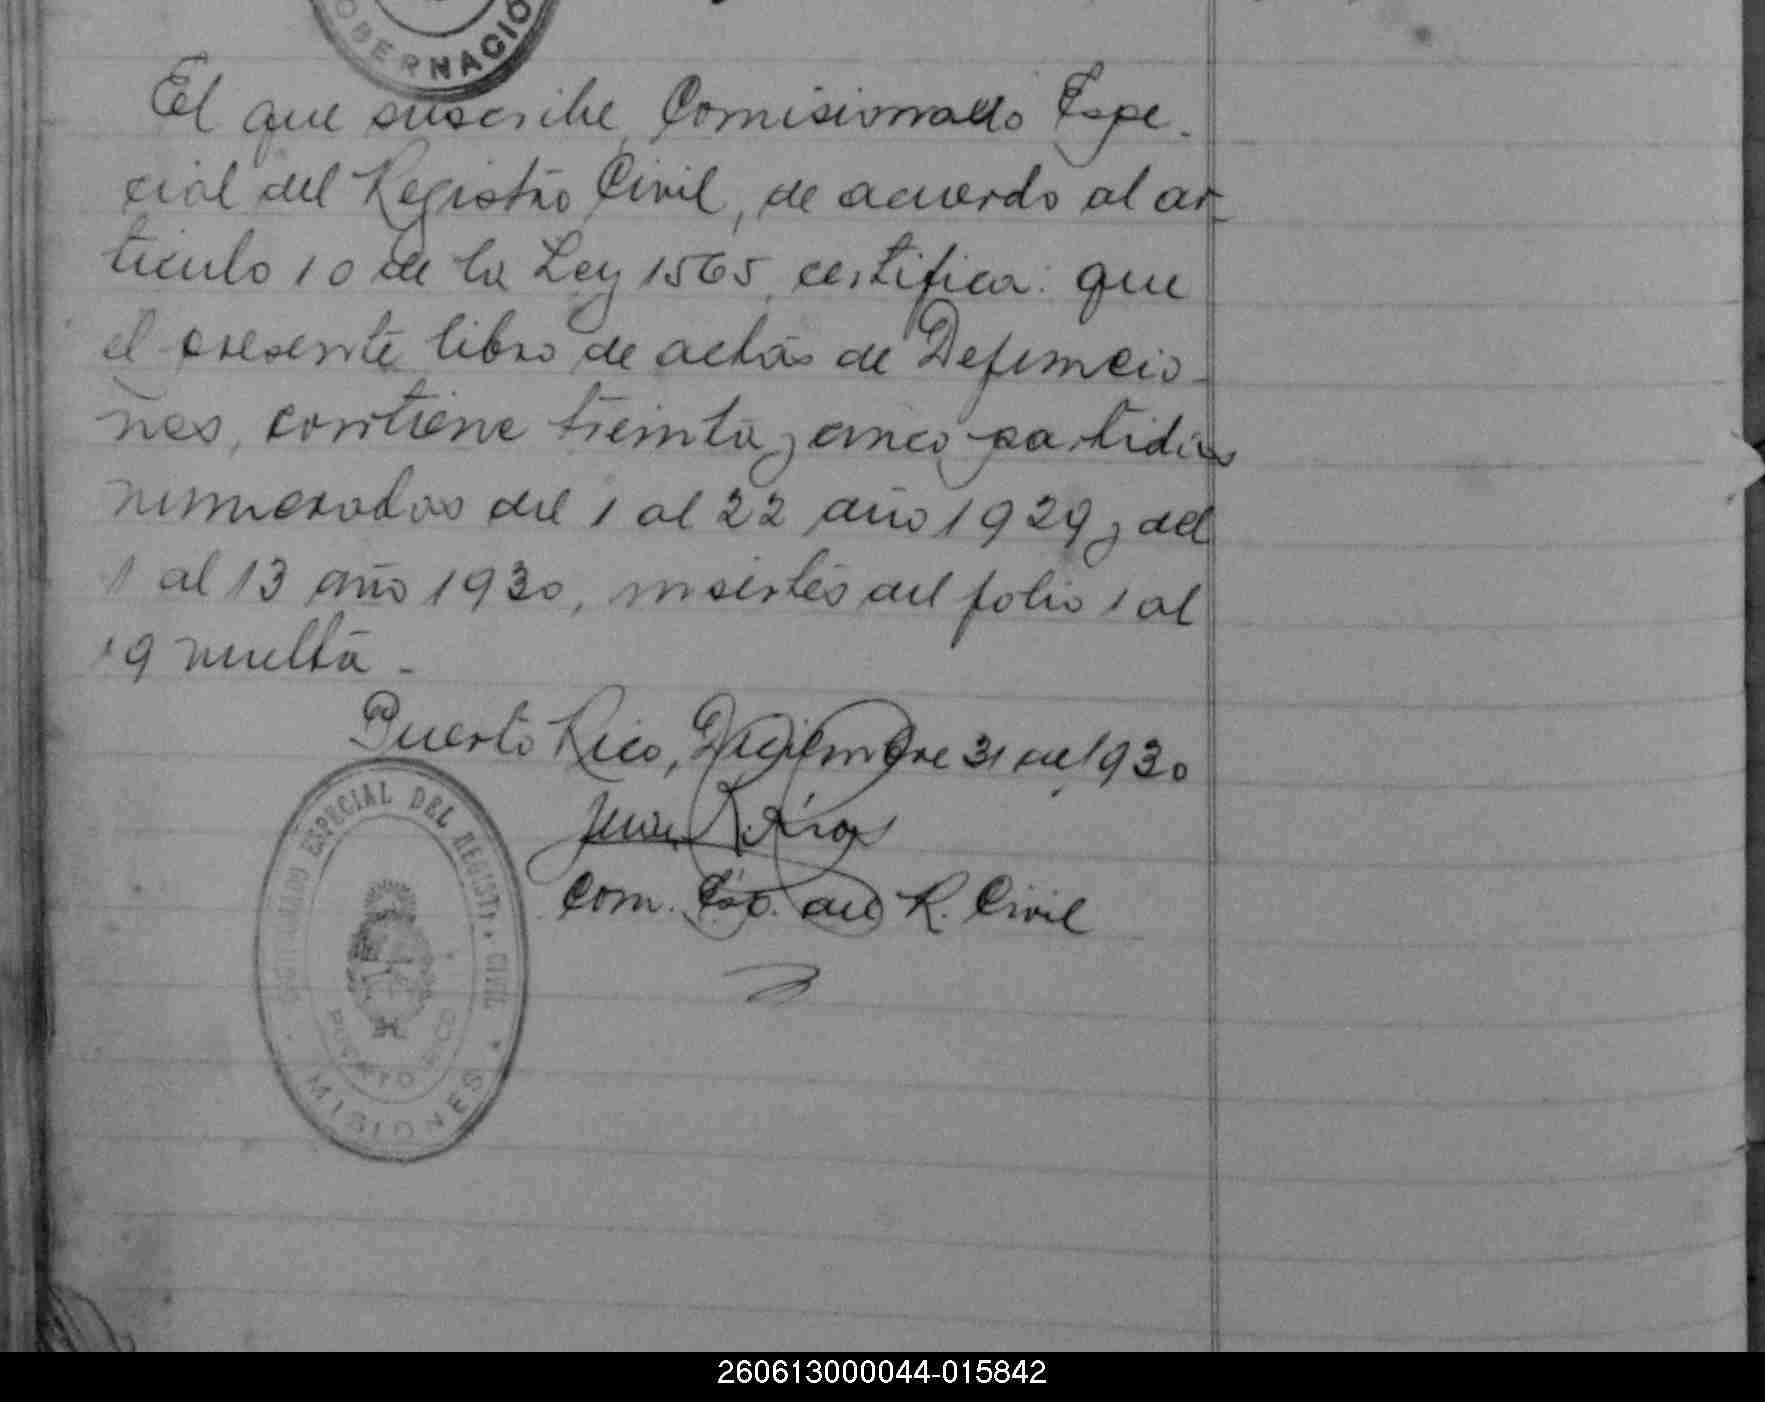 OBERNACIÓ
El que suscribe, Comisionado Espe-
cial del Registro Civil, de acuerdo al ar-
ticulo 10 de la Ley 1565, certifica: que
el presente libro de actas de Defuncio-
nes, contiene treinta y cinco partidas
numeradas del 1 al 22 año 1929 y del
1 al 13 año 1930, insertes del folio 1 al
19 vuelta -
Puerto Rico, Diciembre 31 de 1930
Juan
Com. Esp. del R. Civil
ESPECIAL DEL REGISTR. CIVIL
PUERTO RICO
MISIONES
260613000044-015842